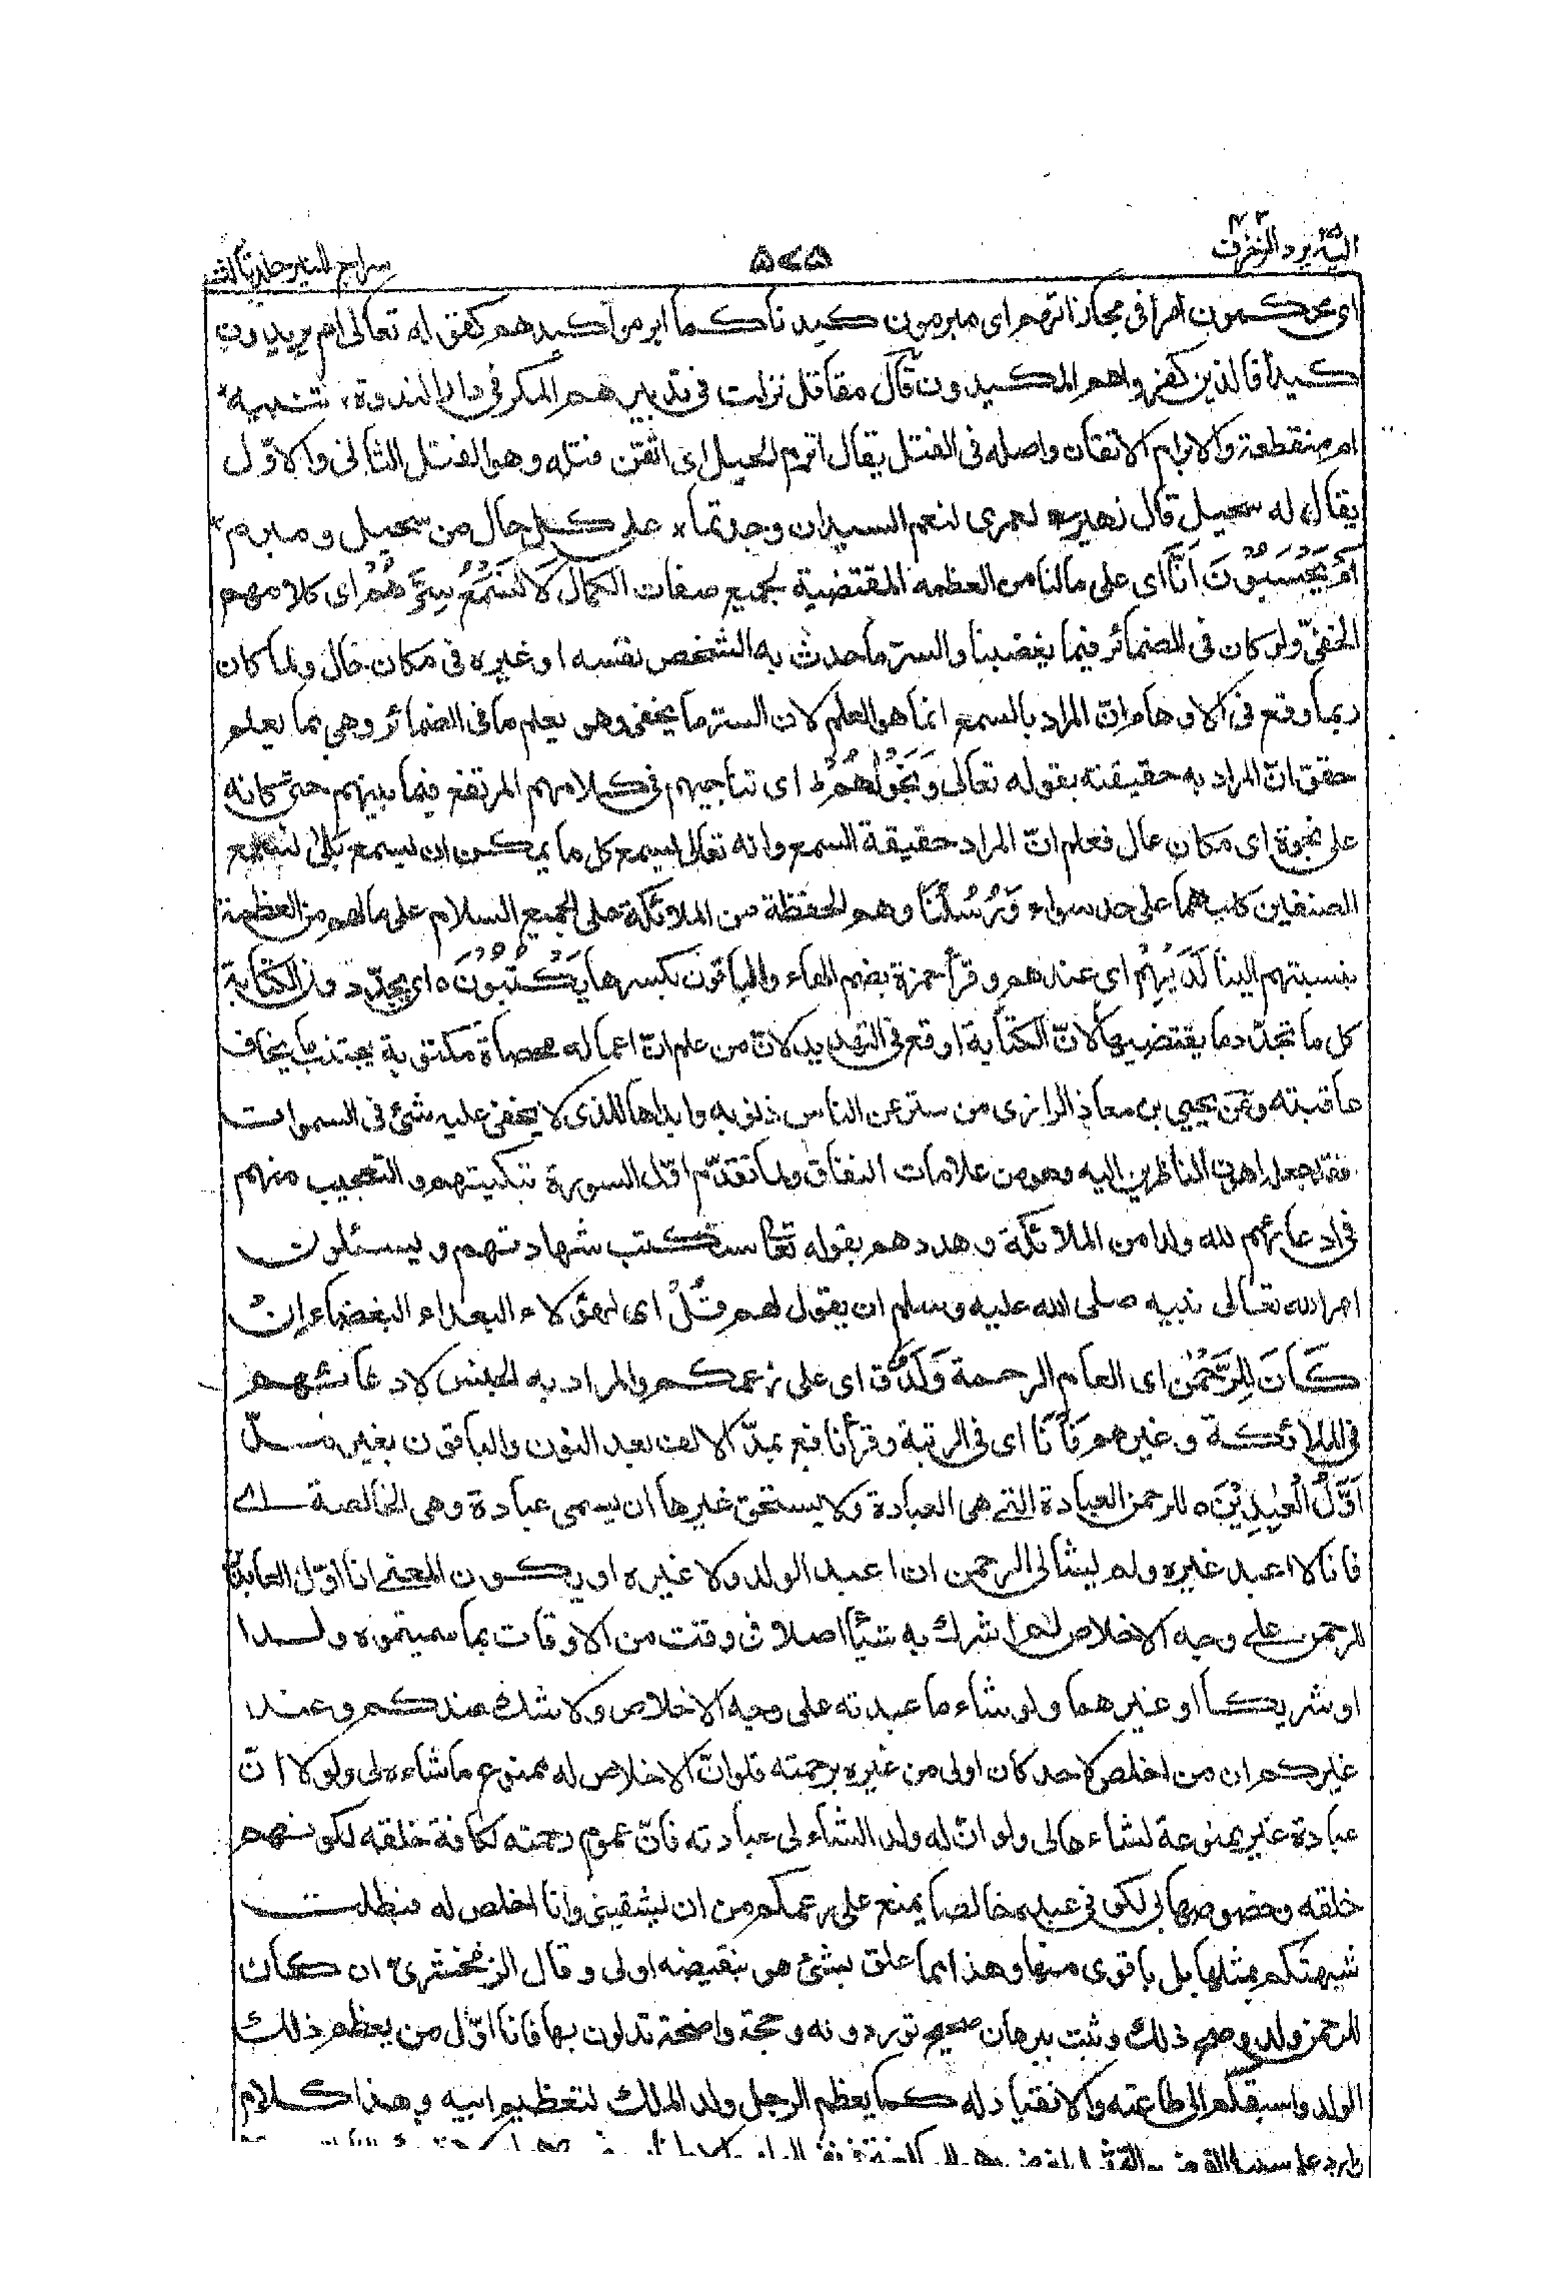 اليه يرد الزخرف ٤٣
٥٧٥
سراج المنير جلد ثالث
اى محكمون امرا فى مجازاتهم اى مبرمون كيدنا كما ابرموا كيدهم كقوله تعالى ام يريدون
كيدا فالذين كفروا هم المكيدون قال مقاتل نزلت فى تدبيرهم المكر فى دار الندوة، تنبيه
ام منقطعة والابرام الاتقان واصله فى الفتل يقال ابرم الحبل اى اتقن فتله وهو الفتل الثانى والاوّل
يقال له سحيل قال زهير لعمرى لنعم السيدان وجدتما * على كل حال من سحيل و مبرم
اَمْ يَحْسَبُوْنَ اَنَّا اى على مالنا من العظمه المقتضية لجميع صفات الكمال لَا نَسْمَعُ سِرَّهُمْ اى كلامهم
الخفىّ ولو كان فى الضمائر فيما يغضبنا والسرّ ما حدث به الشخص نفسه او غيره فى مكان خال ولما كان
ربما وقع فى الاوهام انّ المراد بالسمع انما هو العلم لان السرّ ما يخفى وهو يعلم ما فى الضمائر وهى مما يعلم
حقق انّ المراد به حقيقته بقوله تعالى وَنَجْوٰىهُمْ ط اى تناجيهم فى كلامهم المرتفع فيما بينهم حتى كانه
على نجوة اى مكان عال فعلم انّ المراد حقيقة السمع وانه تعالى يسمع كل ما يمكن ان يسمع بَلٰى نسمع
الصنفين كليهما على حد سواء وَرُسُلُنَا وهم الحفظة من الملائكة على الجميع السلام على مالهم من العظمة
بنسبتهم الينا لَدَيْهِمْ اى عندهم وقرأ حمزة بضم الهاء والباقون بكسرها يَكْتُبُوْنَ ه اى يجدّدون الكتابة
كل ما تجدّد ما يقتضيها لانّ الكتابة اوقع فى التهديد لانّ من علم انّ اعماله محصاة مكتوبة يجتنب ما يخاف
عاقبته وعن يحيى بن معاذ الرازى من ستر عن الناس ذنوبه وابداها للذى لا يخفى عليه شئ فى السموات
فقد جعله اهون الناظرين اليه وهو من علامات النفاق ولما تقدّم اوّل السورة تبكيتهم والتعجيب منهم
فى ادعائهم لله ولدا من الملائكة وهددهم بقوله تعالى ستكتب شهادتهم ويسئلون
امر الله تعالى نبيه صلى الله عليه وسلم ان يقول لهم قُلْ اى لهؤلاء البعداء البغضاء اِنْ
كَانَ لِلرَّحْمٰنِ اى العام الرحمة وَلَدٌ ق اى على زعمكم والمراد به الجنس لادعائهم
فى الملائكة وغيرهم فَاَنَا اى فى الرتبة وقرأ نافع بمدّ الالف بعد النون والباقون بغير مدّ
اَوَّلُ الْعٰبِدِيْنَ ه للرحمن العبادة التى هى العبادة ولا يستحق غيرها ان يسمى عبادة وهى الخالصة اى
فانا لا اعبد غيره ولم يشأ لى الرحمن ان اعبد الولد ولا غيره او يكون المعنى انا اوّل العابدين
للرحمن على وجه الاخلاص لم اشرك به شيأ اصلا فى وقت من الاوقات بما سميتموه ولدا
او شريكا او غيرهما ولو شاء ما عبدته على وجه الاخلاص ولا شك عندكم وعند
غيركم ان من اخلص لاحد كان اولى من غيره برحمته فلو انّ الاخلاص له ممنوع ما شاءه لى ولولا انّ
عبادة غيره ممنوعة لشاءها لى ولو انّ له ولد الشاء لى عبادته فانّ عموم رحمته لكافة خلقه لكونهم
خلقه وخصوصها بى لكونى عبده خالصا يمنع على زعمكم من ان يشقينى وانا اخلص له فبطلت
شبهتكم بمثلها بل باقوى منها وهذا مما علق بشئ هو بنقيضه اولى وقال الزمخشرى ان كان
للرحمن ولد وصح ذلك وثبت ببرهان صحيح توردونه وحجة واضحة تدلون بها فانا اوّل من يعظم ذلك
الولد واسبقكم الى طاعته والانقياد له كما يعظم الرجل ولد الملك لتعظيم ابيه وهذا كلام
وارد على سبيل الفرض